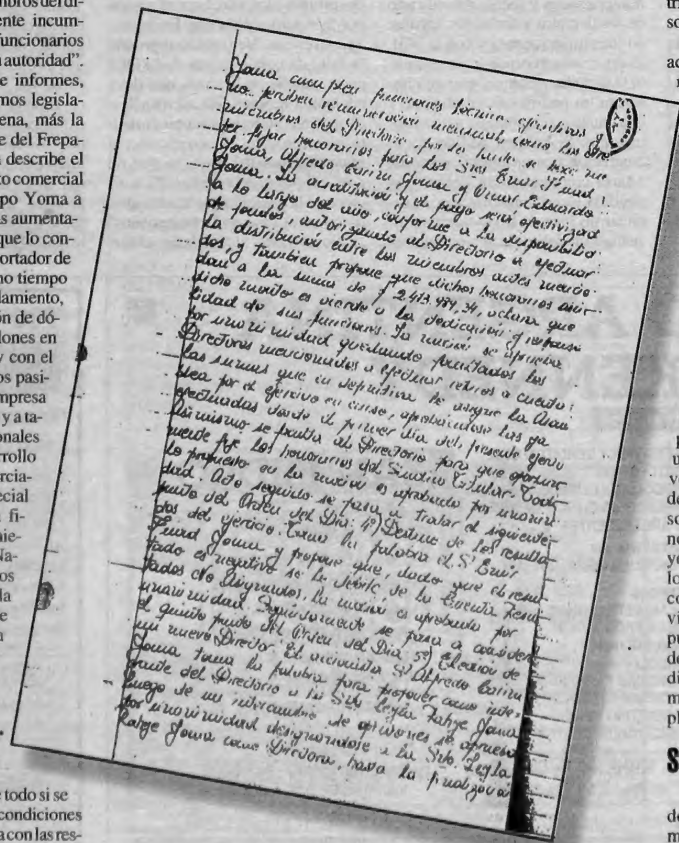 mbros del di-
ente incum-
funcionarios
a autoridad".
e informes,
mos legisla-
ena, más la
e del Frepa-
a describe el
to comercial
po Yoma a
s aumenta-
que lo con-
portador de
no tiempo
damiento,
ón de dó-
lones en
y con el
os pasi-
mpresa
y a ta-
onales
rrollo
rcia-
ecial
fi-
nie-
Na-
os
la
e
a
todo si se
condiciones
a con las res-
Yoma cumplen funciones técnico, ejecutivas y
no perciben remuneración mensual, como los otros
miembros del Directorio, por lo tanto se hace me
ter fijar honorarios para los Sres Emir Fuad
Yoma, Alfredo Carim Yoma y Omar Eduardo
Yoma. La acreditación y el pago será efectivizad
a lo largo del año, conforme a la disponibilid
de fondos, autorizando al Directorio a efectuar
la distribución entre los miembros antes mencio
dos, y también propone que dichos honorarios ascie
dan a la suma de $ 2.413.   , 34, aclara que
dicho monto es viendo a la dedicación y responsa
bilidad de sus funciones. La moción se aprueba
por unanimidad quedando facultados los
Directores mencionados a efectuar retiros a cuenta
las sumas que en definitiva le asigne la Asam
blea por el ejercicio en curso, aprobándose las ya
efectuadas desde el primer día del presente ejerci
Asimismo se faculta al Directorio para que oportuna
mente fije los honorarios del Síndico Titular. Todo
lo propuesto en la moción es aprobado por unanimi
dad. Acto seguido se pasa a tratar el siguiente
punto del Orden del Día: 4º) Destino de los resulta
dos del ejercicio. Toma la palabra el Sr Emir
Fuad Yoma y propone que, dado que el resu
tado es negativo se lo debite de la Cuenta Resu
tados No Asignados, la moción es aprobada por
unanimidad. Seguidamente se pasa a consider
el quinto punto del Orden del Día: 5º) Elección de
un nuevo Director. El accionista Sr Alfredo Carim
Yoma toma la palabra para proponer como inte
grante del Directorio a la Srta Leyla Zahye Yoma
Luego de un intercambio de opiniones se aprueba
por unanimidad designándose a la Srta. Leyla
Zahye Yoma como Directora, hasta la finalización